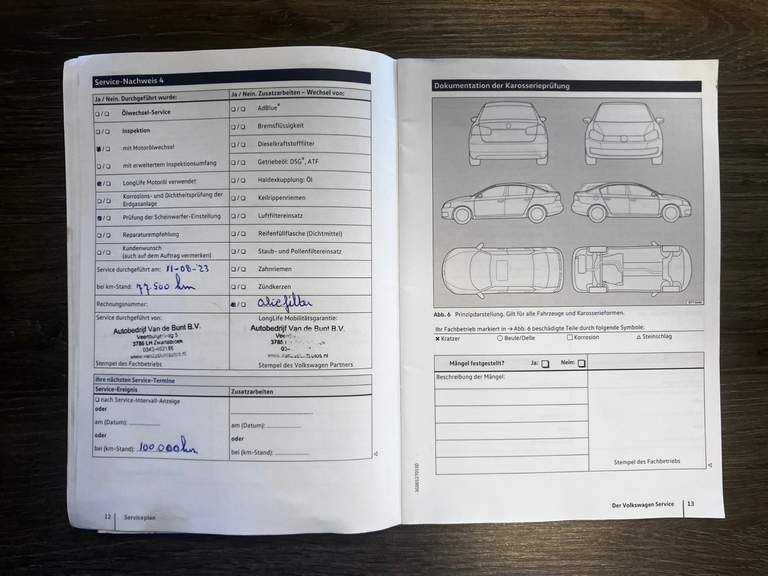 Service-Nachweis 4
Ja / Nein. Durchgeführt wurde:
Ja / Nein. Zusatzarbeiten – Wechsel von:
Ölwechsel-Service
AdBlue®
Inspektion
Bremsflüssigkeit
mit Motorölwechsel
Dieselkraftstofffilter
mit erweitertem Inspektionsumfang
Getriebeöl: DSG®, ATF
LongLife Motoröl verwendet
Haldexkupplung: Öl
Korrosions- und Dichtheitsprüfung der
Erdgasanlage
Keilrippenriemen
Prüfung der Scheinwerfer-Einstellung
Luftfiltereinsatz
Reparaturempfehlung
Reifenfüllflasche (Dichtmittel)
Kundenwunsch
(auch auf dem Auftrag vermerken)
Staub- und Pollenfiltereinsatz
Service durchgeführt am: 11-08-23
Zahnriemen
bei km-Stand: 77.500 km
Zündkerzen
Rechnungsnummer:
oliefilter
Service durchgeführt von:
LongLife Mobilitätsgarantie:
Autobedrijf Van de Bunt B.V.
3785 LH Zwartebroek
Autobedrijf Van de Bunt B.V.
Stempel des Fachbetriebs
Stempel des Volkswagen Partners
Ihre nächsten Service-Termine
Service-Ereignis
Zusatzarbeiten
nach Service-Intervall-Anzeige
oder
am (Datum):
am (Datum):
oder
oder
bei (km-Stand): 100.000 km
bei (km-Stand):
12 Serviceplan
Dokumentation der Karosserieprüfung
Abb. 6 Prinzipdarstellung. Gilt für alle Fahrzeuge und Karosserieformen.
Ihr Fachbetrieb markiert in → Abb. 6 beschädigte Teile durch folgende Symbole:
Kratzer
Beule/Delle
Korrosion
Steinschlag
Mängel festgestellt? Ja: Nein:
Beschreibung der Mängel:
Stempel des Fachbetriebs
Der Volkswagen Service 13